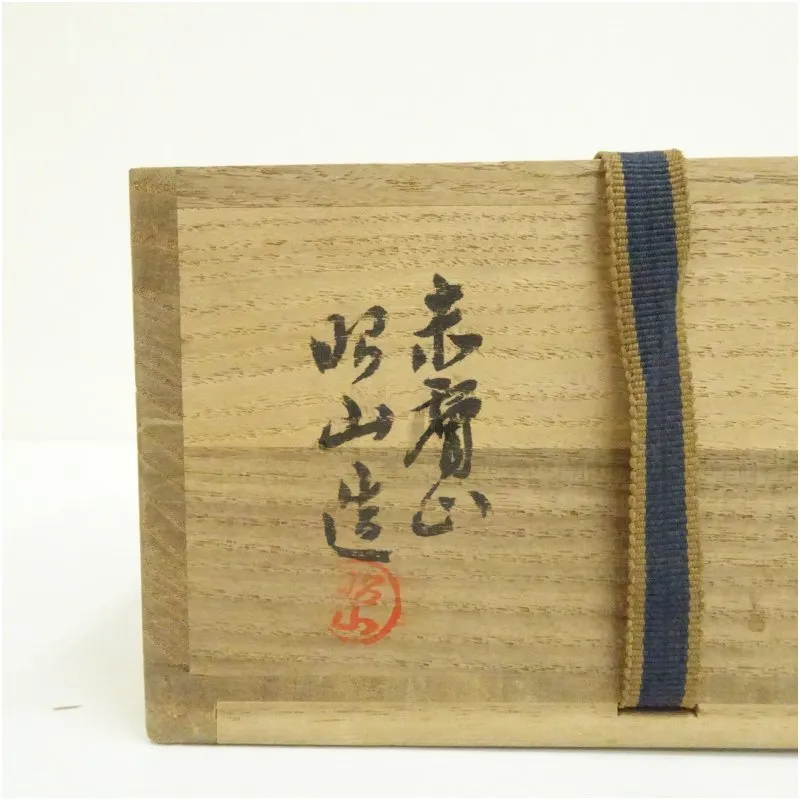 赤膚山
昭山造
昭山